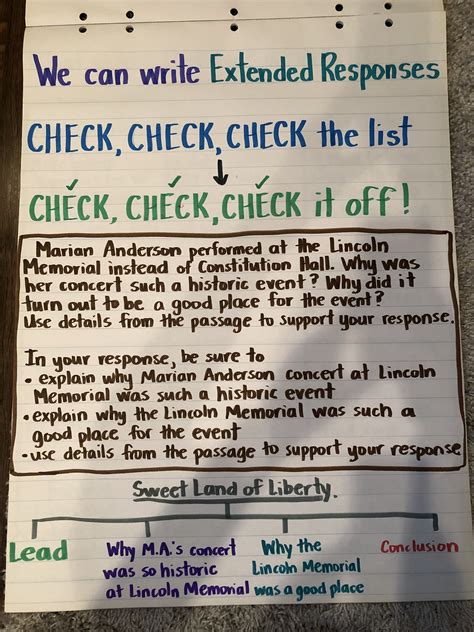 We can write Extended Responses
CHECK, CHECK, CHECK the list
CHECK, CHECK, CHECK it off!
Marian Anderson performed at the Lincoln
Memorial instead of Constitution Hall. Why was
her concert such a historic event? Why did it
turn out to be a good place for the event?
Use details from the passage to support your response.
In your response, be sure to
• explain why Marian Anderson concert at Lincoln
Memorial was such a historic event
• explain why the Lincoln Memorial was such a
good place for the event
• use details from the passage to support your response
Sweet Land of Liberty.
Lead
Why M.A.'s concert
was so historic
at Lincoln Memorial
Why the
Lincoln Memorial
was a good place
Conclusion